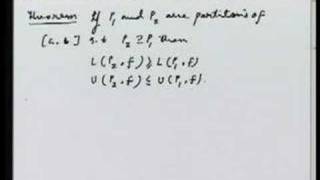 Theorem If P₁ and P₂ are partitions of
[a.b] s.t P₂ ⊇ P₁ then
L(P₂,f) ≥ L(P₁,f)
U(P₂,f) ≤ U(P₁,f).